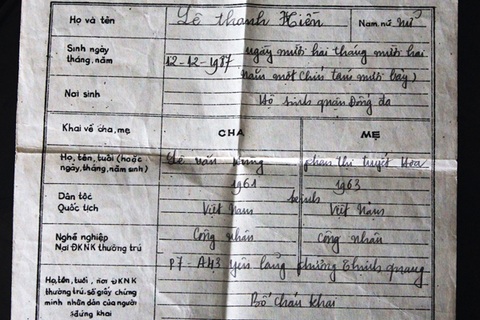 Họ và tên Lê thanh Hiền Nam nữ nữ
Sinh ngày tháng, năm 12-12-1987 ngày mười hai tháng mười hai
năm một chín tám mười bảy)
Nơi sinh Hộ sinh quận Đống đa
Khai về cha, mẹ CHA MẸ
Họ, tên, tuổi (hoặc ngày, tháng, năm sinh) Lê văn phan thị tuyết Hoa
1961 1963
Dân tộc kinh
Quốc tịch Việt Nam Việt Nam
Nghề nghiệp Công nhân Công nhân
Nơi ĐKNK thường trú P7 - A43 yên lãng phường Thịnh quang
Họ, tên, tuổi, nơi ĐKNK
thường trú, số giấy chứng
minh nhân dân của người
đứng khai
Bố cháu khai